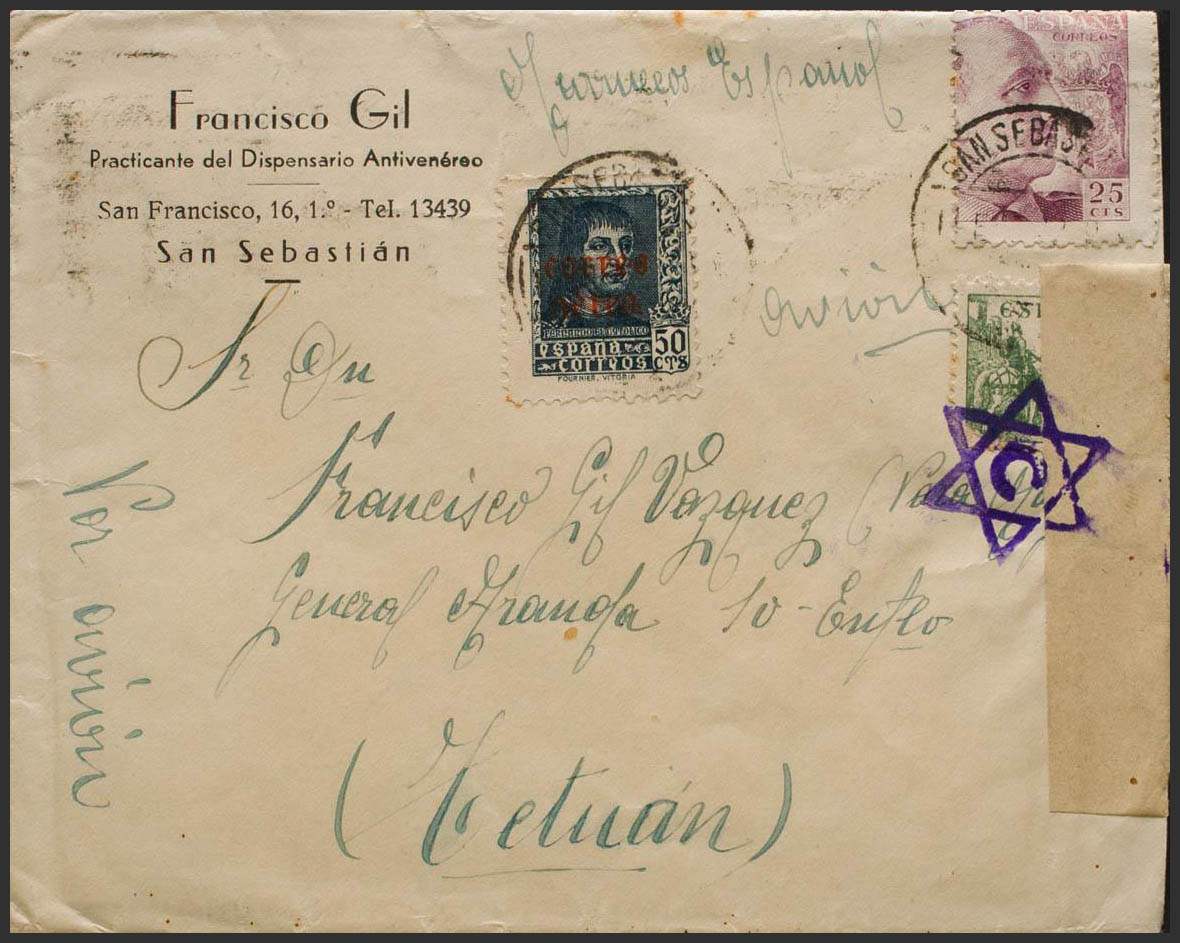 Francisco Gil
Practicante del Dispensario Antivenéreo
San Francisco, 16, 1.º - Tel. 13439
San Sebastián
Marruecos Español
ESPAÑA
CORREOS
25
CTS
SAN SEBAS
CORREO
AEREO
FERNANDO EL CATOLICO
50
CTS
ESPAÑA
CORREOS
FOURNIER. VITORIA
avión
Sr Dn
Francisco Gil Vazquez (Para
General Aranda 10 - Entlo
(Tetuán)
Por avión
C